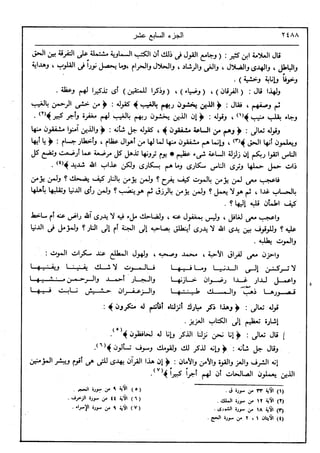 ٢٤٨٨
الجزء السابع عشر
قال العلامة ابن كثير : (وجامع القول في ذلك أن الكتب السماوية مشتملة على التفرقة بين الحق
والباطل ، والهدى والضلال ، والغي والرشاد ، والحلال والحرام ، وما يحصل نوراً في القلوب ، وهداية
وخوفاً وإنابة وخشية) .
ولهذا قال : (الفرقان) ، (وضياء) ، (وذكراً للمتقين) أي تذكيراً لهم وعظة .
ثم وصفهم ، فقال : ﴿ الذين يخشون ربهم بالغيب ﴾ كقوله : ﴿ من خشي الرحمن بالغيب
وجاء بقلب منيب ﴾(١) ، وقوله : ﴿ إن الذين يخشون ربهم بالغيب لهم مغفرة وأجر كبير ﴾(٢) .
وقوله تعالى : ﴿ وهم من الساعة مشفقون ﴾ ، كقوله جل شأنه : ﴿ والذين آمنوا مشفقون منها
ويعلمون أنها الحق ﴾(٣) ، وإنما هم مشفقون منها لما لها من أهوال عظام ، وأخطار جسام : ﴿ يا أيها
الناس اتقوا ربكم إن زلزلة الساعة شيء عظيم * يوم ترونها تذهل كل مرضعة عما أرضعت وتضع كل
ذات حمل حملها وترى الناس سكارى وما هم بسكارى ولكن عذاب الله شديد ﴾(٤) .
فاعجب معي لمن يؤمن بالموت كيف يفرح ؟ ولمن يؤمن بالنار كيف يضحك ؟ ولمن يؤمن
بالحساب غداً ، ثم هو لا يعمل ؟ ولمن يؤمن بالرزق ثم هو ينصب ؟ ولمن رأى الدنيا وتقلبها بأهلها
كيف اطمأن قلبه إليها ؟ .
واعجب معي لغافل ، وليس بمغفول عنه ، ولضاحك ملء فيه لا يدري الله راض عنه أم ساخط
عليه ؟ وللوقوف بين يدي الله لا يدري أينطلق بصاحبه إلى الجنة أم إلى النار ؟ ولمؤمل في الدنيا
والموت يطلبه .
واحزن معي لفراق الأحبة ، محمد وصحبه ، ولهول المطلع عند سكرات الموت :
لا تركنن إلى الدنيا وما فيها فالموت لا شك يفنينا ويفنيها
واعمل لدار غدا رضوان خازنها والجار أحمد والرحمن منشيها
قصورها ذهب والمسك طينتها والزعفران حشيش نابت فيها
قوله تعالى : ﴿ وهذا ذكر مبارك أنزلناه أفأنتم له منكرون ﴾ :
إشارة تعظيم إلى الكتاب العزيز .
قال تعالى : ﴿ إنا نحن نزلنا الذكر وإنا له لحافظون ﴾(٥) .
وقال جل شأنه : ﴿ وإنه لذكر لك ولقومك وسوف تسألون ﴾(٦) .
إنه الشرف والعز والقوة والأمن والأمان : ﴿ إن هذا القرآن يهدي للتي هي أقوم ويبشر المؤمنين
الذين يعملون الصالحات أن لهم أجراً كبيراً ﴾(٧) .
(١) الآية ٣٣ من سورة ق .
(٢) الآية ١٢ من سورة الملك .
(٣) الآية ١٨ من سورة الشورى .
(٤) الآيتان ١ ، ٢ من سورة الحج .
(٥) الآية ٩ من سورة الحجر .
(٦) الآية ٤٤ من سورة الزخرف .
(٧) الآية ٩ من سورة الإسراء .